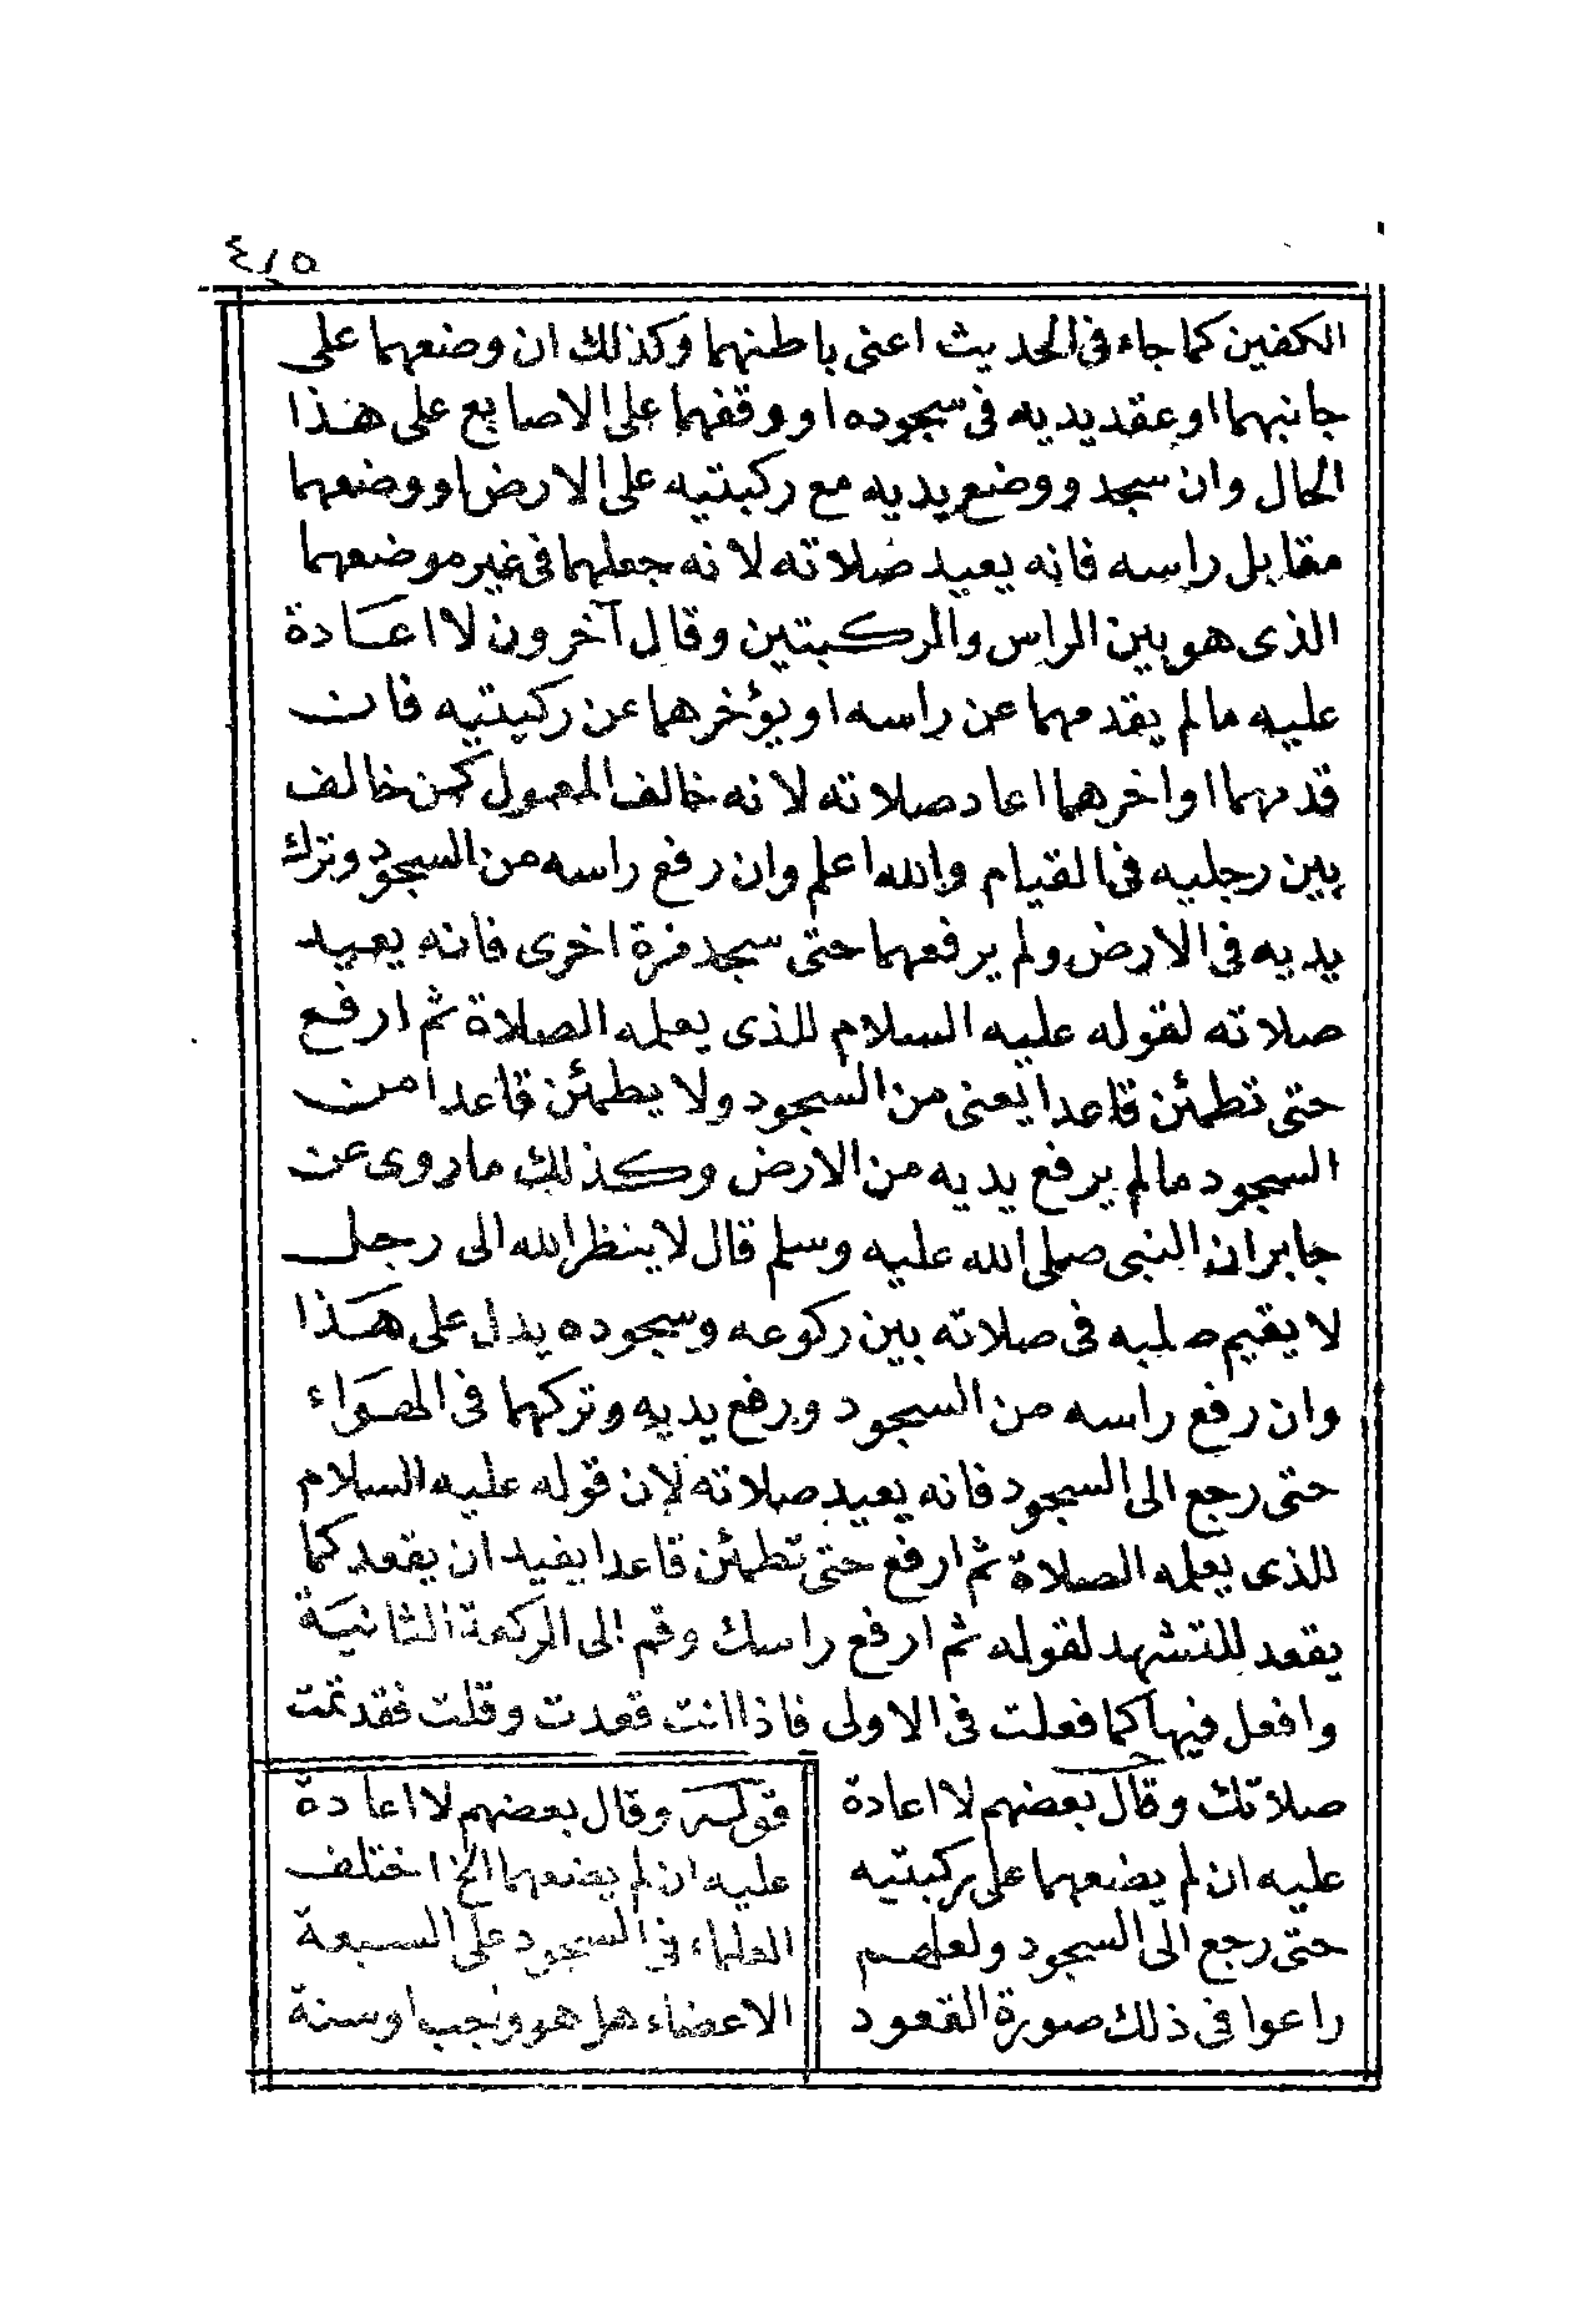 ٤١٥
الكفين كما جاء فى الحديث اعنى باطنهما وكذلك ان وضعهما على
جانبهما او عقد يديه فى سجوده او وقفهما على الاصابع على هذا
الحال وان سجد ووضع يديه مع ركبتيه على الارض او وضعهما
مقابل راسه فانه يعيد صلاته لانه جعلهما فى غير موضعهما
الذى هو بين الراس والركبتين وقال آخرون لا اعادة
عليه ما لم يقدمهما عن راسه او يؤخرهما عن ركبتيه فان
قدمهما او اخرهما اعاد صلاته لانه خالف المعمول كمن خالف
بين رجليه فى القيام والله اعلم وان رفع راسه من السجود وترك
يديه فى الارض ولم يرفعهما حتى سجد مرة اخرى فانه يعيد
صلاته لقوله عليه السلام للذى يعلمه الصلاة ثم ارفع
حتى تطمئن قاعدا يعنى من السجود ولا يطمئن قاعدا من
السجود ما لم يرفع يديه من الارض وكذلك ما روى عن
جابر ان النبى صلى الله عليه وسلم قال لا ينظر الله الى رجل
لا يقيم صلبه فى صلاته بين ركوعه وسجوده يدل على هذا
وان رفع راسه من السجود ورفع يديه وتركهما فى الهواء
حتى رجع الى السجود فانه يعيد صلاته لان قوله عليه السلام
للذى يعلمه الصلاة ثم ارفع حتى تطمئن قاعدا يفيد ان يقعد كما
يقعد للتشهد لقوله ثم ارفع راسك وقم الى الركعة الثانية
وافعل فيها كما فعلت فى الاولى فاذا انت قعدت وقلت فقد تمت
صلاتك وقال بعضهم لا اعادة
عليه ان لم يضعهما على ركبتيه
حتى رجع الى السجود ولعلهم
راعوا فى ذلك صورة القعود
قوله وقال بعضهم لا اعادة
عليه ان لم يضعهما الخ اختلف
العلماء فى السجود على السبعة
الاعضاء هل هو واجب او سنة